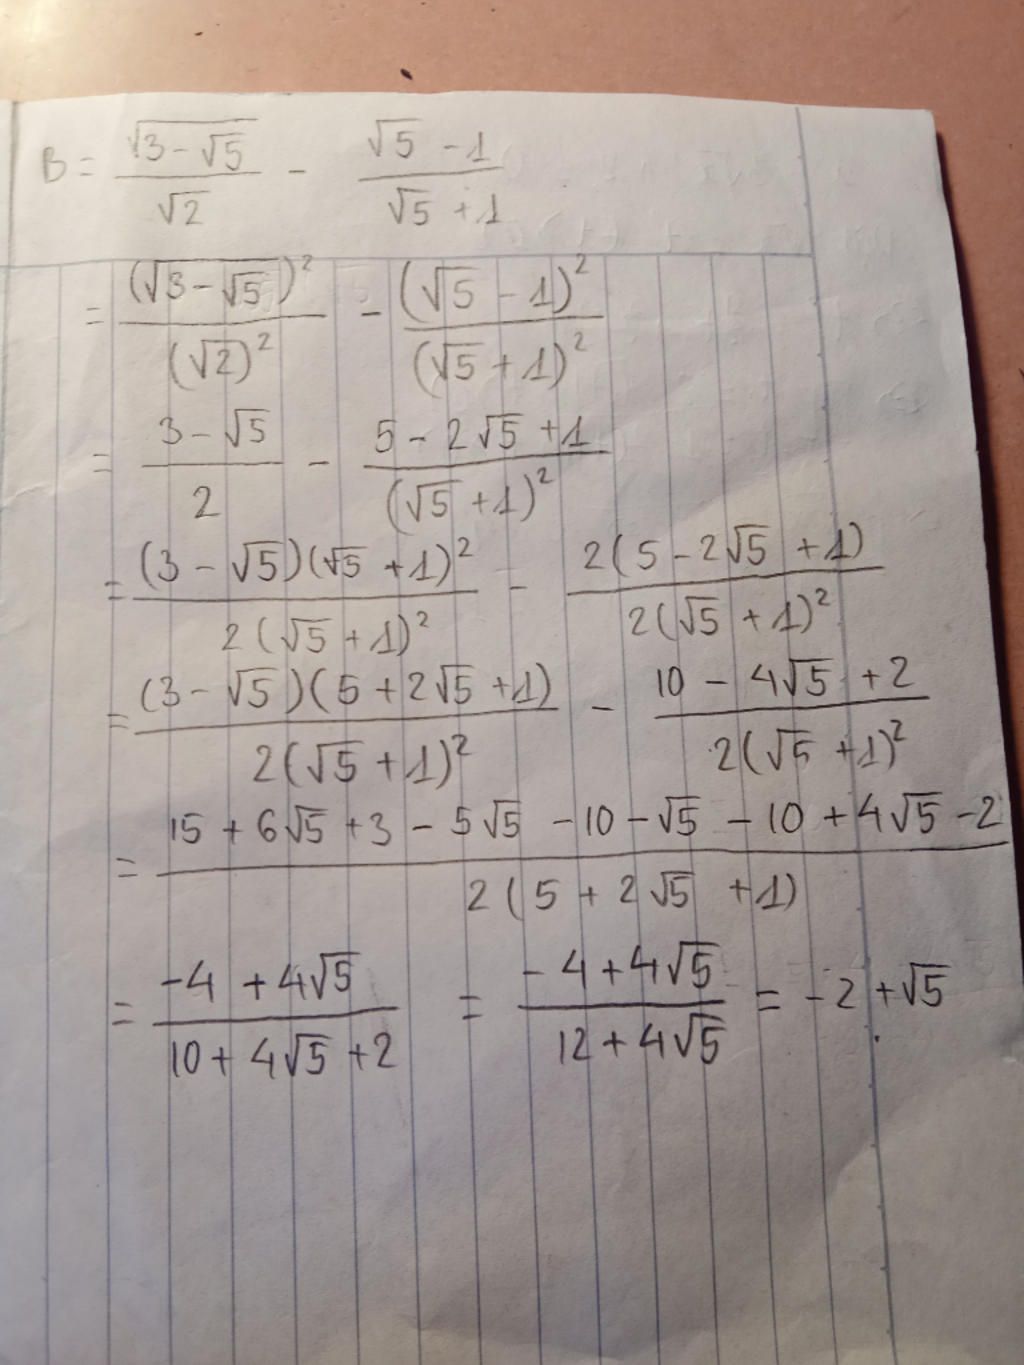 B = \frac{\sqrt{3-\sqrt{5}}}{\sqrt{2}} - \frac{\sqrt{5}-1}{\sqrt{5}+1}
= \frac{(\sqrt{3-\sqrt{5}})^2}{(\sqrt{2})^2} - \frac{(\sqrt{5}-1)^2}{(\sqrt{5}+1)^2}
= \frac{3-\sqrt{5}}{2} - \frac{5-2\sqrt{5}+1}{(\sqrt{5}+1)^2}
= \frac{(3-\sqrt{5})(\sqrt{5}+1)^2}{2(\sqrt{5}+1)^2} - \frac{2(5-2\sqrt{5}+1)}{2(\sqrt{5}+1)^2}
= \frac{(3-\sqrt{5})(5+2\sqrt{5}+1)}{2(\sqrt{5}+1)^2} - \frac{10-4\sqrt{5}+2}{2(\sqrt{5}+1)^2}
= \frac{15+6\sqrt{5}+3-5\sqrt{5}-10-\sqrt{5}-10+4\sqrt{5}-2}{2(5+2\sqrt{5}+1)}
= \frac{-4+4\sqrt{5}}{10+4\sqrt{5}+2} = \frac{-4+4\sqrt{5}}{12+4\sqrt{5}} = -2+\sqrt{5}